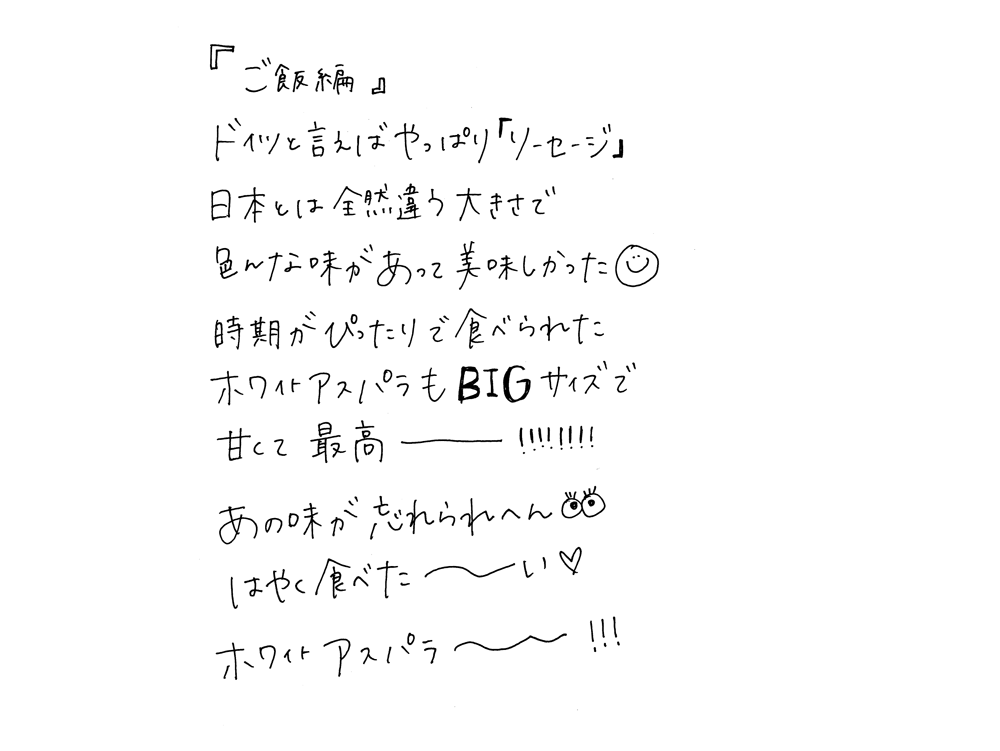 『ご飯編』
ドイツと言えばやっぱり「ソーセージ」
日本とは全然違う大きさで
色んな味があって美味しかった☺
時期がぴったりで食べられた
ホワイトアスパラもBIGサイズで
甘くて最高ーー!!!!!!!!
あの味が忘れられへん👀
はやく食べた〜〜い♡
ホワイトアスパラ〜〜!!!